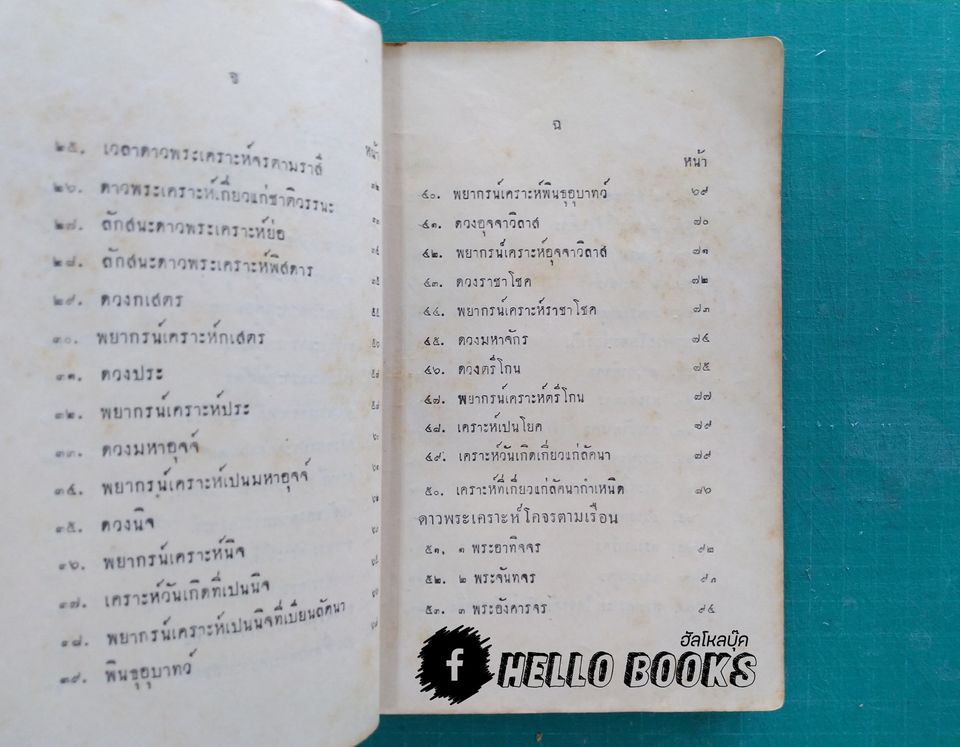 จ
หน้า
๒๕. เวลาดาวพระเคราะห์จรตามราสี
๒๖. ดาวพระเคราะห์เกี่ยวแก่ชาติวรรนะ
๒๗. ลักสนะดาวพระเคราะห์ย่อ
๒๘. ลักสนะดาวพระเคราะห์พิสดาร
๒๙. ดวงกเสตร
๓๐. พยากรน์เคราะห์กเสตร
๓๑. ดวงประ
๓๒. พยากรน์เคราะห์ประ
๓๓. ดวงมหาอุจจ์
๓๔. พยากรน์เคราะห์เปนมหาอุจจ์
๓๕. ดวงนิจ
๓๖. พยากรน์เคราะห์นิจ
๓๗. เคราะห์วันเกิดที่เปนนิจ
๓๘. พยากรน์เคราะห์เปนนิจที่เบียนลัคนา
๓๙. พินธุอุบาทว์
ฉ
หน้า
๔๐. พยากรน์เคราะห์พินธุอุบาทว์ ๖๙
๔๑. ดวงอุจจาวิลาส ๗๐
๔๒. พยากรน์เคราะห์อุจจาวิลาส ๗๑
๔๓. ดวงราชาโชค ๗๒
๔๔. พยากรน์เคราะห์ราชาโชค ๗๓
๔๕. ดวงมหาจักร ๗๔
๔๖. ดวงตรีโกน ๗๕
๔๗. พยากรน์เคราะห์ตรีโกน ๗๗
๔๘. เคราะห์เปนโยค ๗๙
๔๙. เคราะห์วันเกิดเกี่ยวแก่ลัคนา ๗๙
๕๐. เคราะห์ที่เกี่ยวแก่ลัคนากำเหนิด ๘๖
ดาวพระเคราะห์โคจรตามเรือน
๕๑. ๑ พระอาทิจจร ๙๒
๕๒. ๒ พระจันทจร ๙๓
๕๓. ๓ พระอังคารจร ๙๔
ฮัลโหลบุ๊ค
f HELLO BOOKS